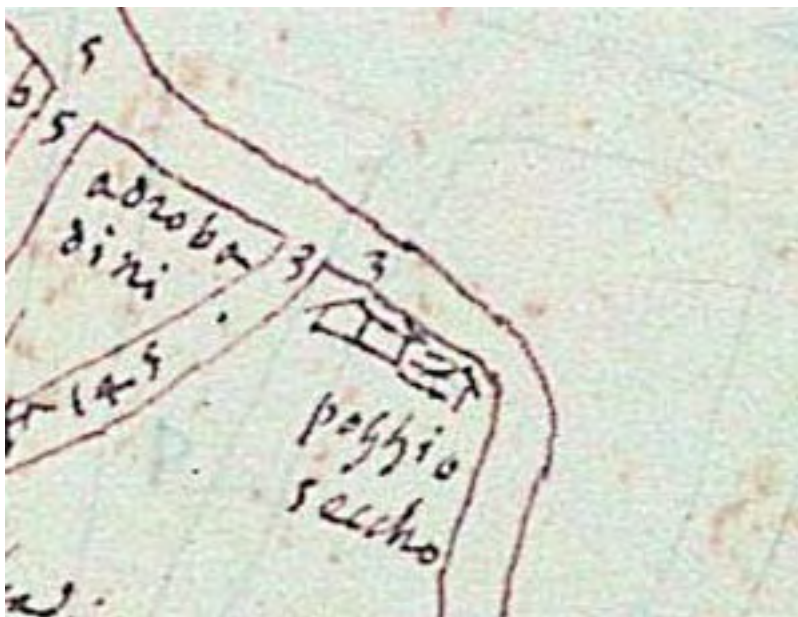 5
6
5
adroba
dini
3
3
145
poggio
seccho